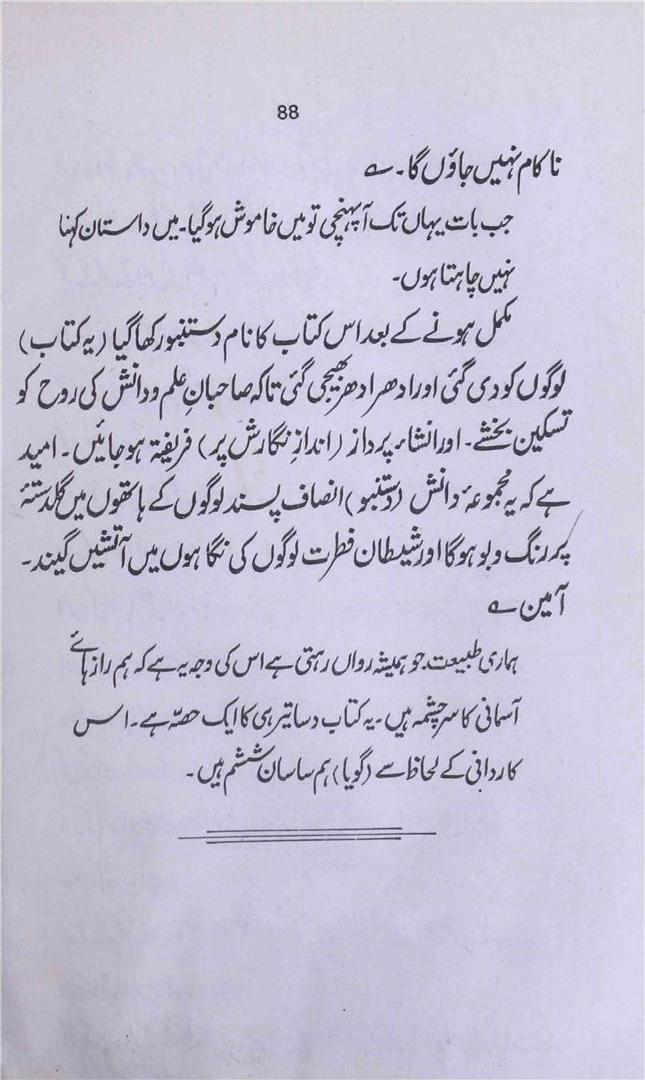 88
ناکام نہیں جاؤں گا۔ ؎
جب بات یہاں تک آپہنچی تو میں خاموش ہوگیا۔ میں داستان کہنا
نہیں چاہتا ہوں۔
مکمل ہونے کے بعد اس کتاب کا نام دستنبو رکھا گیا (یہ کتاب)
لوگوں کو دی گئی اور ادھر ادھر بھیجی گئی تاکہ صاحبانِ علم و دانش کی روح کو
تسکین بخشے۔ اور انشاء پرداز (اندازِ نگارش پر) فریفتہ ہو جائیں۔ امید
ہے کہ یہ مجموعۂ دانش (دستنبو) انصاف پسند لوگوں کے ہاتھوں میں گلدستۂ
پر رنگ و بو ہوگا اور شیطان فطرت لوگوں کی نگاہوں میں آتشیں گیند۔
آمین ؎
ہماری طبیعت جو ہمیشہ رواں رہتی ہے اس کی وجہ یہ ہے کہ ہم رازہائے
آسمانی کا سرچشمہ ہیں۔ یہ کتاب دساتیر ہی کا ایک حصّہ ہے۔ اس
کاردانی کے لحاظ سے (گویا) ہم ساسان ششم ہیں۔